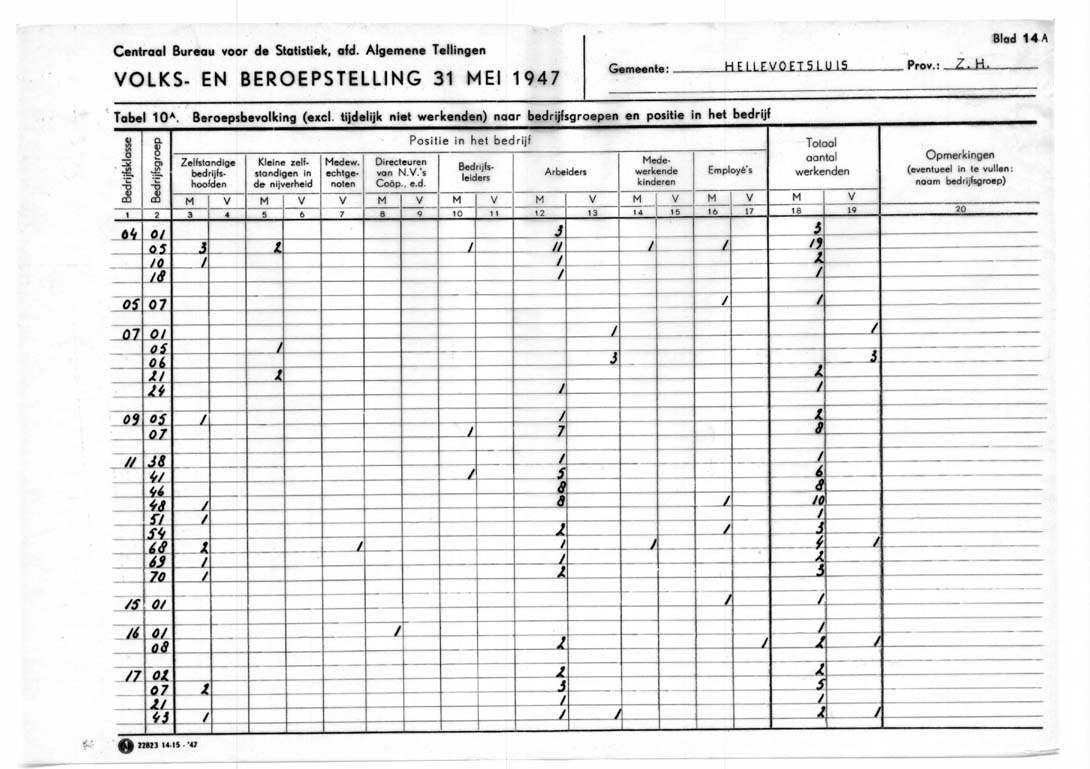 Blad 14 A
Centraal Bureau voor de Statistiek, afd. Algemene Tellingen
VOLKS- EN BEROEPSTELLING 31 MEI 1947
Gemeente: HELLEVOETSLUIS Prov.: Z.H.
Tabel 10A. Beroepsbevolking (excl. tijdelijk niet werkenden) naar bedrijfsgroepen en positie in het bedrijf
Bedrijfsklasse
Bedrijfsgroep
Positie in het bedrijf
Zelfstandige bedrijfs-hoofden
Kleine zelf-standigen in de nijverheid
Medew. echtge-noten
Directeuren van N.V.'s Coöp., e.d.
Bedrijfs-leiders
Arbeiders
Mede-werkende kinderen
Employé's
Totaal aantal werkenden
Opmerkingen (eventueel in te vullen: naam bedrijfsgroep)
M V M V V M V M V M V M V M V M V
1 2 3 4 5 6 7 8 9 10 11 12 13 14 15 16 17 18 19 20
04 01 3 3
05 3 2 1 11 1 1 19
10 1 1 2
18 1 1
05 07 1 1
07 01 1 1
05 1
06 3 3
21 2 2
24 1 1
09 05 1 1 2
07 1 7 8
11 38 1 1
41 1 5 6
46 8 8
48 1 8 1 10
51 1 1
54 2 1 3
68 2 1 1 1 4 1
69 1 1 2
70 1 2 3
15 01 1 1
16 01 1 1
08 2 1 2 1
17 02 2 2
07 2 3 5
21 1 1
43 1 1 1 2 1
22823 14-15 - '47